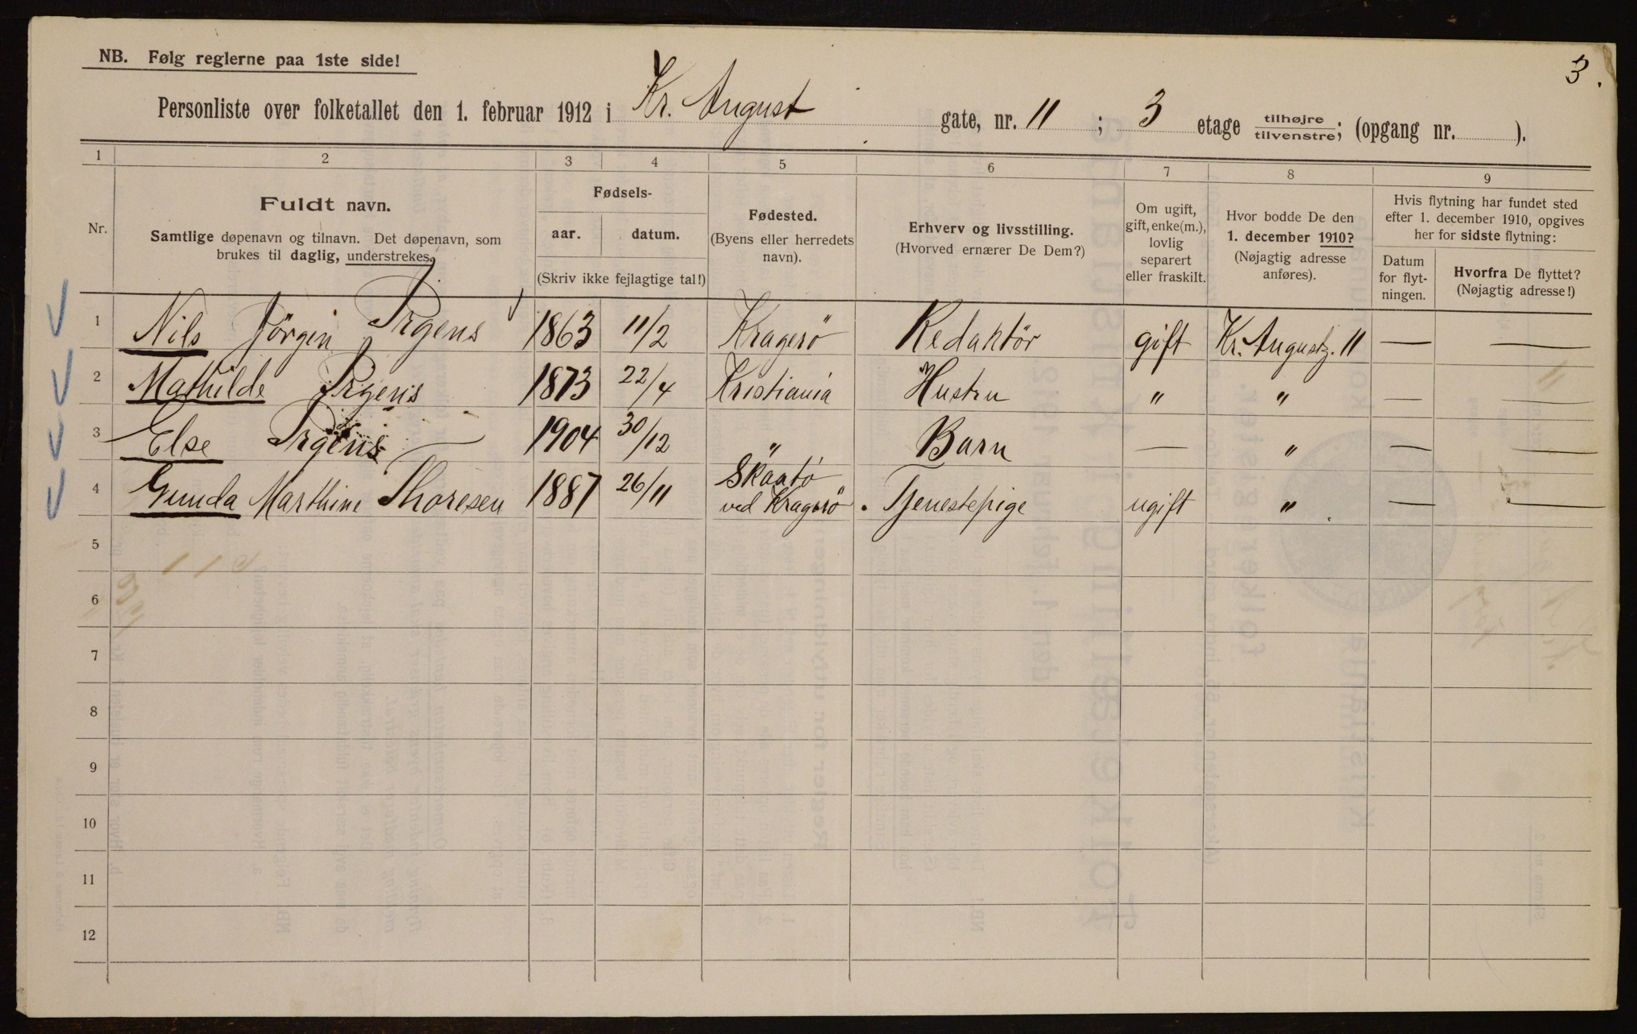 3.
NB. Følg reglerne paa 1ste side!
Personliste over folketallet den 1. februar 1912 i Kr. August gate, nr. 11 ; 3 etage tilhøjre tilvenstre; (opgang nr. ).
1 2 3 4 5 6 7 8 9
Nr.
Fuldt navn.
Samtlige døpenavn og tilnavn. Det døpenavn, som
brukes til daglig, understrekes.
Fødsels-
aar. datum.
(Skriv ikke fejlagtige tal!)
Fødested.
(Byens eller herredets
navn).
Erhverv og livsstilling.
(Hvorved ernærer De Dem?)
Om ugift,
gift, enke(m.),
lovlig
separert
eller fraskilt.
Hvor bodde De den
1. december 1910?
(Nøjagtig adresse
anføres).
Hvis flytning har fundet sted
efter 1. december 1910, opgives
her for sidste flytning:
Datum
for flyt-
ningen.
Hvorfra De flyttet?
(Nøjagtig adresse!)
1 Nils Jörgen Irgens 1863 11/2 Kragerö Redaktör gift Kr. Augustg. 11 — —
2 Mathilde Irgens 1873 22/4 Kristiania Hustru " " — —
3 Else Irgens — 1904 30/12 " Barn — " — —
4 Gunda Marthine Thoresen 1887 26/11 Skaatö
ved Kragerö. Tjenestepige ugift " — —
5
6
7
8
9
10
11
12